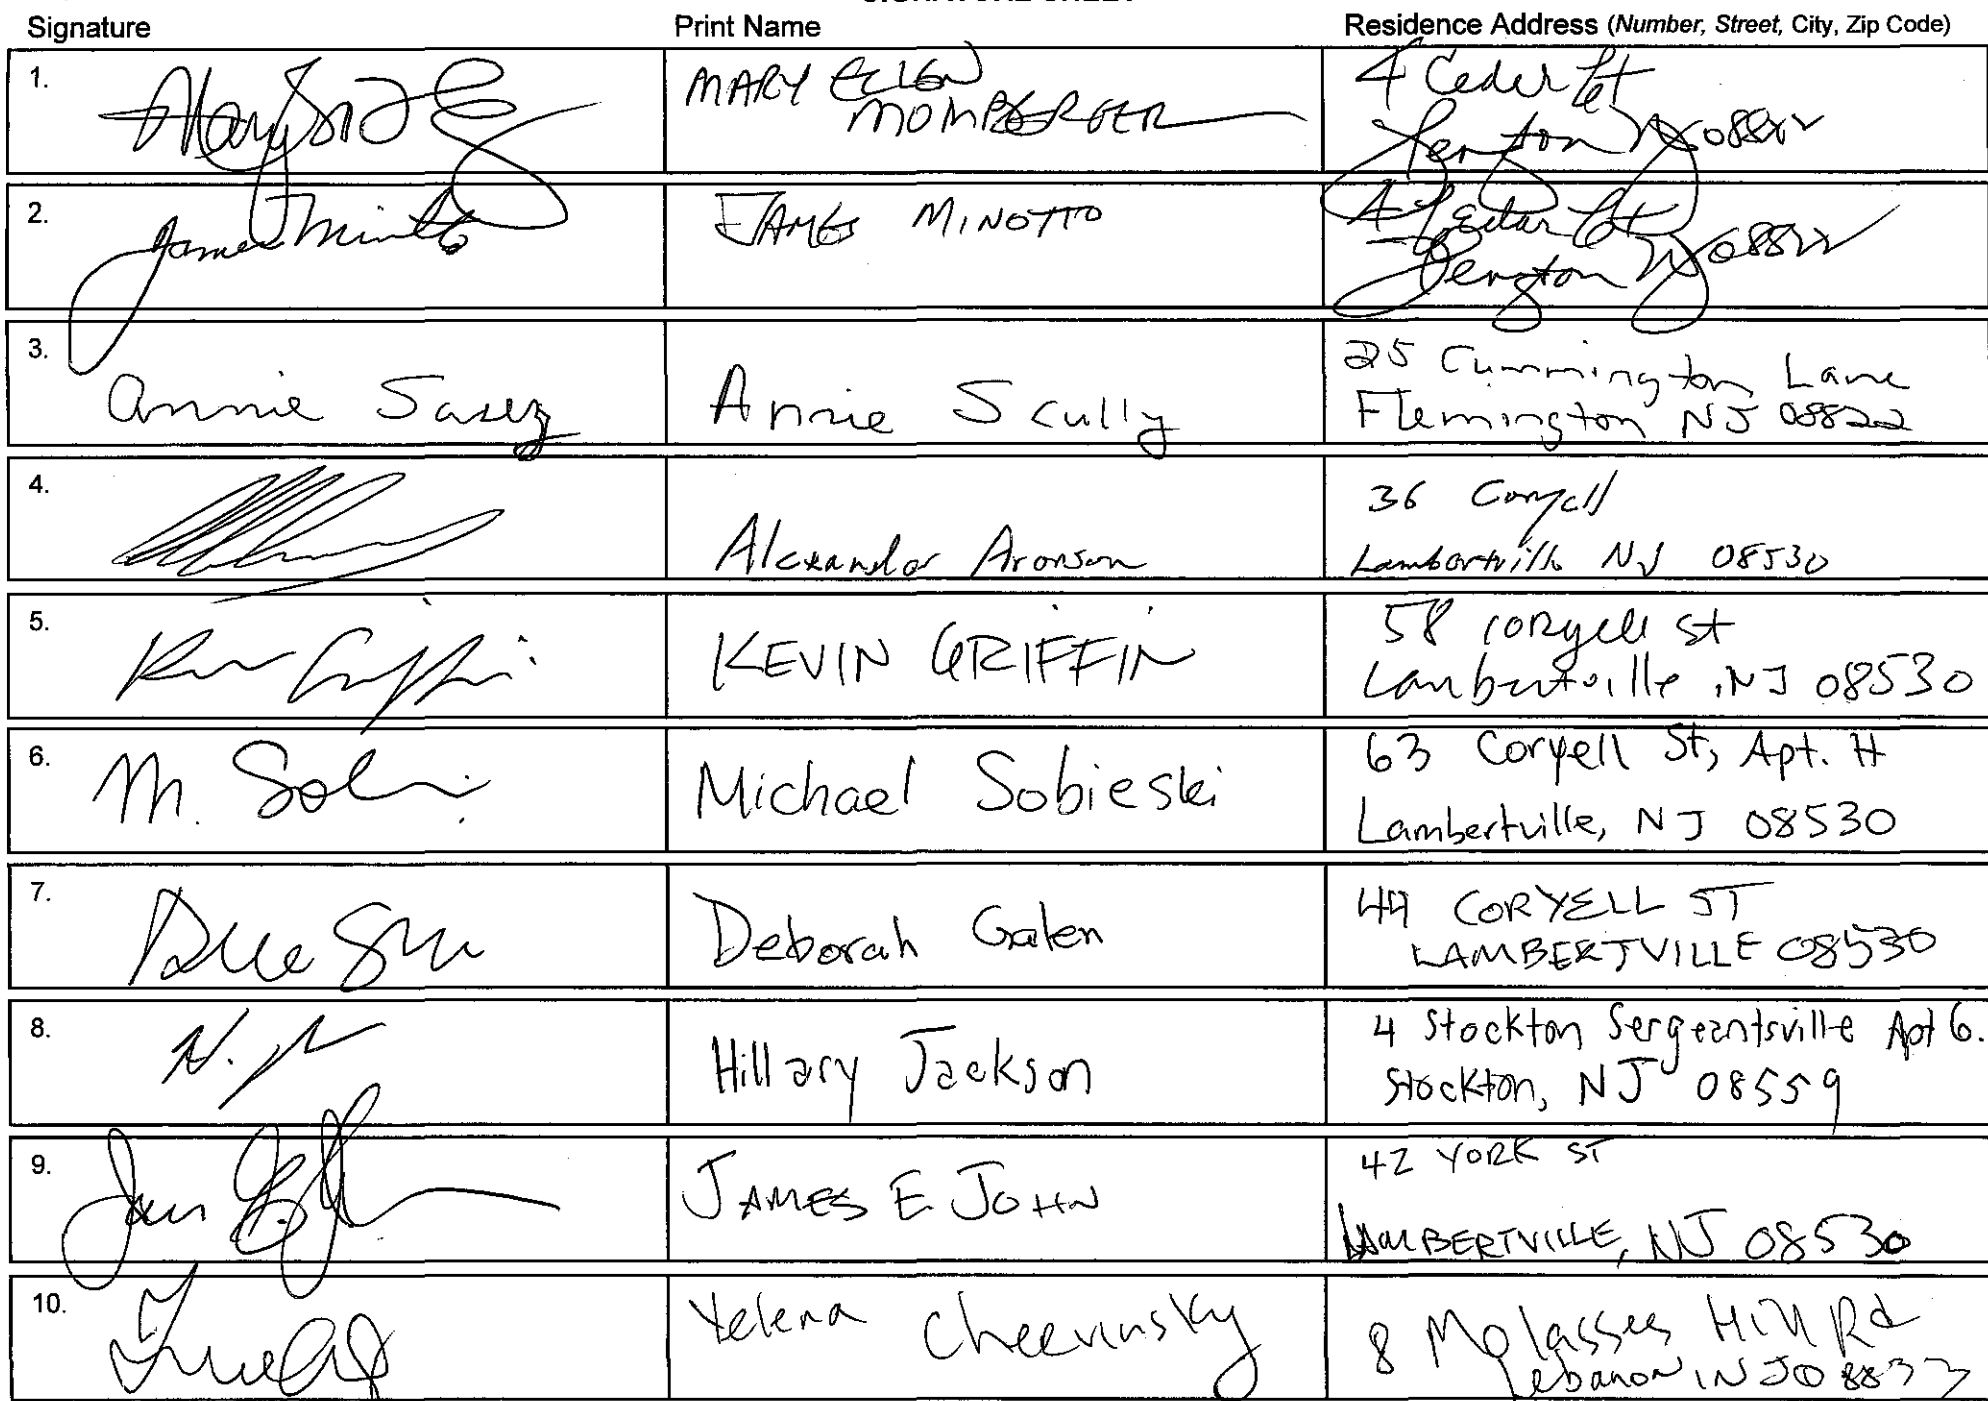 Signature Print Name Residence Address (Number, Street, City, Zip Code)
1. MARY ELLEN
MOMBERGER
4 Cedar Ct
NJ 08822
2. James Minotto JAMES MINOTTO 4 Cedar Ct
NJ 08822
3. Annie Scully 25 Cummington Lane
Flemington NJ 08822
4. 36 Coryell
Alexander Aronson Lambertville NJ 08530
5. KEVIN GRIFFIN 58 Coryell St
Lambertville, NJ 08530
6. M. Michael Sobieski 63 Coryell St, Apt. H
Lambertville, NJ 08530
7. Deborah Galen 49 CORYELL ST
LAMBERTVILLE 08530
8. Hillary Jackson 4 Stockton Sergeantsville Apt 6.
Stockton, NJ 08559
9. JAMES E. JOHN 42 YORK ST
LAMBERTVILLE, NJ 08530
10. Yelena 8 Molasses Hill Rd
Lebanon NJ 08833